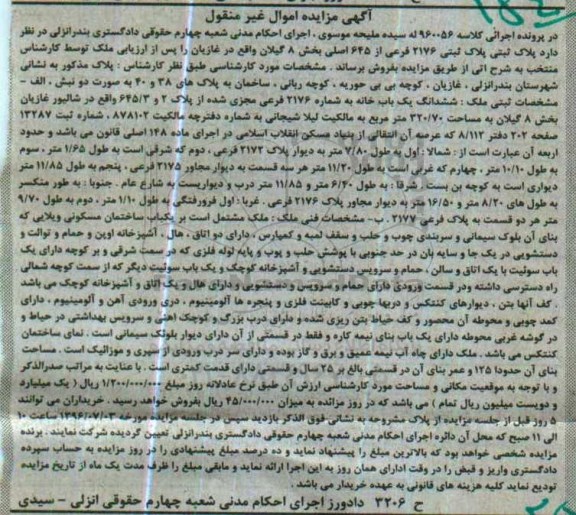 آگهی مزایده اموال غیر منقول
در پرونده اجرائی کلاسه ۹۶۰۰۵۶ له سیده ملیحه موسوی ، اجرای احکام مدنی شعبه چهارم حقوقی دادگستری بندرانزلی در نظر
دارد پلاک ثبتی پلاک ثبتی ۲۱۷۶ فرعی از ۶۴۵ اصلی بخش ۸ گیلان واقع در غازیان را پس از ارزیابی ملک توسط کارشناس
منتخب به شرح اتی از طریق مزایده بفروش برساند . مشخصات مورد کارشناسی طبق نظر کارشناس : پلاک مذکور به نشانی
شهرستان بندرانزلی ، غازیان ، کوچه بی بی حوریه ، کوچه ربانی ، ساختمان به پلاک های ۳۸ و ۴۰ به صورت دو نبش . الف -
مشخصات ثبتی ملک : ششدانگ یک باب خانه به شماره ۲۱۷۶ فرعی مجزی شده از پلاک ۲ و ۶۴۵/۳ واقع در شالیور غازیان
بخش ۸ گیلان به مساحت ۳۲۰/۷۰ متر مربع به مالکیت لیلا شیجانی به شماره دفترچه مالکیت ۸۷۸۱۰۲ ، شماره ثبت ۱۳۲۸۷
صفحه ۲۰۲ دفتر ۸/۱۱۲ که عرصه آن انتقالی از بنیاد مسکن انقلاب اسلامی در اجرای ماده ۱۴۸ اصلی قانون می باشد و حدود
اربعه آن عبارت است از : شمالا : اول به طول ۷/۸۰ متر به دیوار پلاک ۲۱۷۲ فرعی ، دوم که شرقی است به طول ۱/۶۵ متر ، سوم
به طول ۱۰/۱۰ متر ، چهارم که غربی است به طول ۱۱/۳۰ متر هر سه قسمت به دیوار مجاور ۲۱۷۵ فرعی ، پنجم به طول ۱۱/۸۵ متر
دیواری است به کوچه بن بست . شرقا : به طول ۶/۴۰ متر و ۱۱/۸۵ متر درب و دیواریست به شارع عام . جنوبا : به طور منکسر
به طول های ۸/۲۰ متر و ۱۶/۵۰ متر به دیوار مجاور پلاک ۲۱۷۶ فرعی . غربا : اول فرورفتگی به طول ۱/۱۰ متر ، دوم به طول ۹/۷۰
متر هر دو قسمت به پلاک فرعی ۲۱۷۷ . ب - مشخصات فنی ملک : ملک مشتمل است بر یکباب ساختمان مسکونی ویلایی که
بنای آن بلوک سیمانی و سربندی چوب و حلب و سقف لمبه و کمپارس ، دارای دو اتاق ، هال ، آشپزخانه اوپن و حمام و توالت و
دستشویی در یک جا و سایه بان در حد جنوبی با پوشش حلب و پوب و پایه لوله فلزی که در سمت شرقی و بر کوچه دارای یک
باب سوئیت با یک اتاق و سالن ، حمام و سرویس دستشویی و آشپزخانه کوچک و یک باب سوئیت دیگر که از سمت کوچه شمالی
راه دسترسی داشته ودر قسمت ورودی دارای حمام و سرویس و دستشویی و دارای هال و یک اتاق و آشپزخانه کوچک می باشد
. کف آنها بتن ، دیوارهای کنتکس و دربها چوبی و کابینت فلزی و پنجره ها آلومینیوم ، دری ورودی آهن و آلومینیوم ، دارای
کمد چوبی و محوطه آن محصور و کف حیاط بتن ریزی شده و دارای درب بزرگ و کوچک آهنی و سرویس بهداشتی در حیاط و
در گوشه غربی محوطه دارای یک باب بنای نیمه کاره و فقط در قسمتی از آن دارای دیوار بلوک سیمانی است . نمای ساختمان
کنتکس می باشد . ملک دارای چاه آب نیمه عمیق و برق و گاز بوده و دارای سر درب ورودی از سپری و موزائیک است . مساحت
بنای آن حدودا ۱۲۵ و عمر بنای آن در قسمتی بالغ بر ۲۵ سال و قسمتی دارای قدمت کمتری است . با عنایت به مراتب صدرالذکر
و با توجه به موقعیت مکانی و مساحت مورد کارشناسی ارزش آن طبق نرخ عادلانه روز مبلغ ۱/۲۰۰/۰۰۰/۰۰۰ ریال ( یک میلیارد
و دویست میلیون ریال تمام ) می باشد که در روز مزائده به میزان ۴۵/۰۰۰/۰۰۰ ریال بفروش خواهد رسید . خریداران می توانند
۵ روز قبل از جلسه مزایده از پلاک مشروحه به نشانی فوق الذکر بازدید سپس در جلسه مزایده مورخه ۱۳۹۶/۰۷/۰۳ ساعت ۱۰
الی ۱۱ صبح که محل آن دائره اجرای احکام مدنی شعبه چهارم حقوقی دادگستری بندرانزلی تعیین گردیده شرکت نمایند . برنده
مزایده شخصی خواهد بود که بالاترین مبلغ را پیشنهاد نماید و ده درصد مبلغ پیشنهادی را در روز مزایده به حساب سپرده
دادگستری واریز و قبض را در وقت ادارای همان روز به این اجرا ارائه نماید و مابقی مبلغ را ظرف مدت یک ماه از تاریخ مزایده
تودیع نماید کلیه هزینه های قانونی به عهده خریدار می باشد .
ح ۳۲۰۶ دادورز اجرای احکام مدنی شعبه چهارم حقوقی انزلی - سیدی